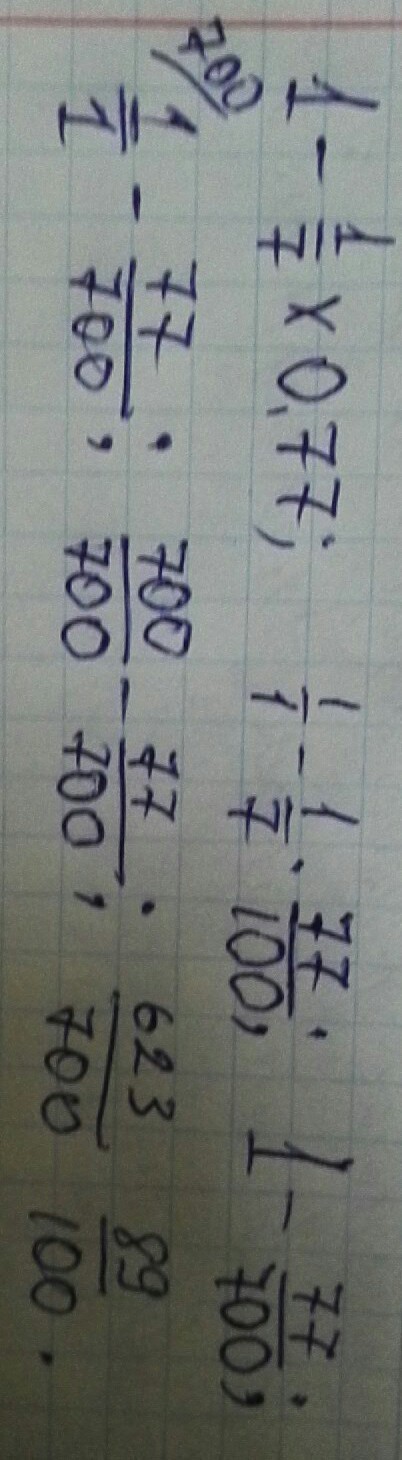 1 - 1/7 × 0,77; 1/1 - 1/7 · 77/100; 1 - 77/700;
700/ 1/1 - 77/700; 700/700 - 77/700; 623/700 89/100.